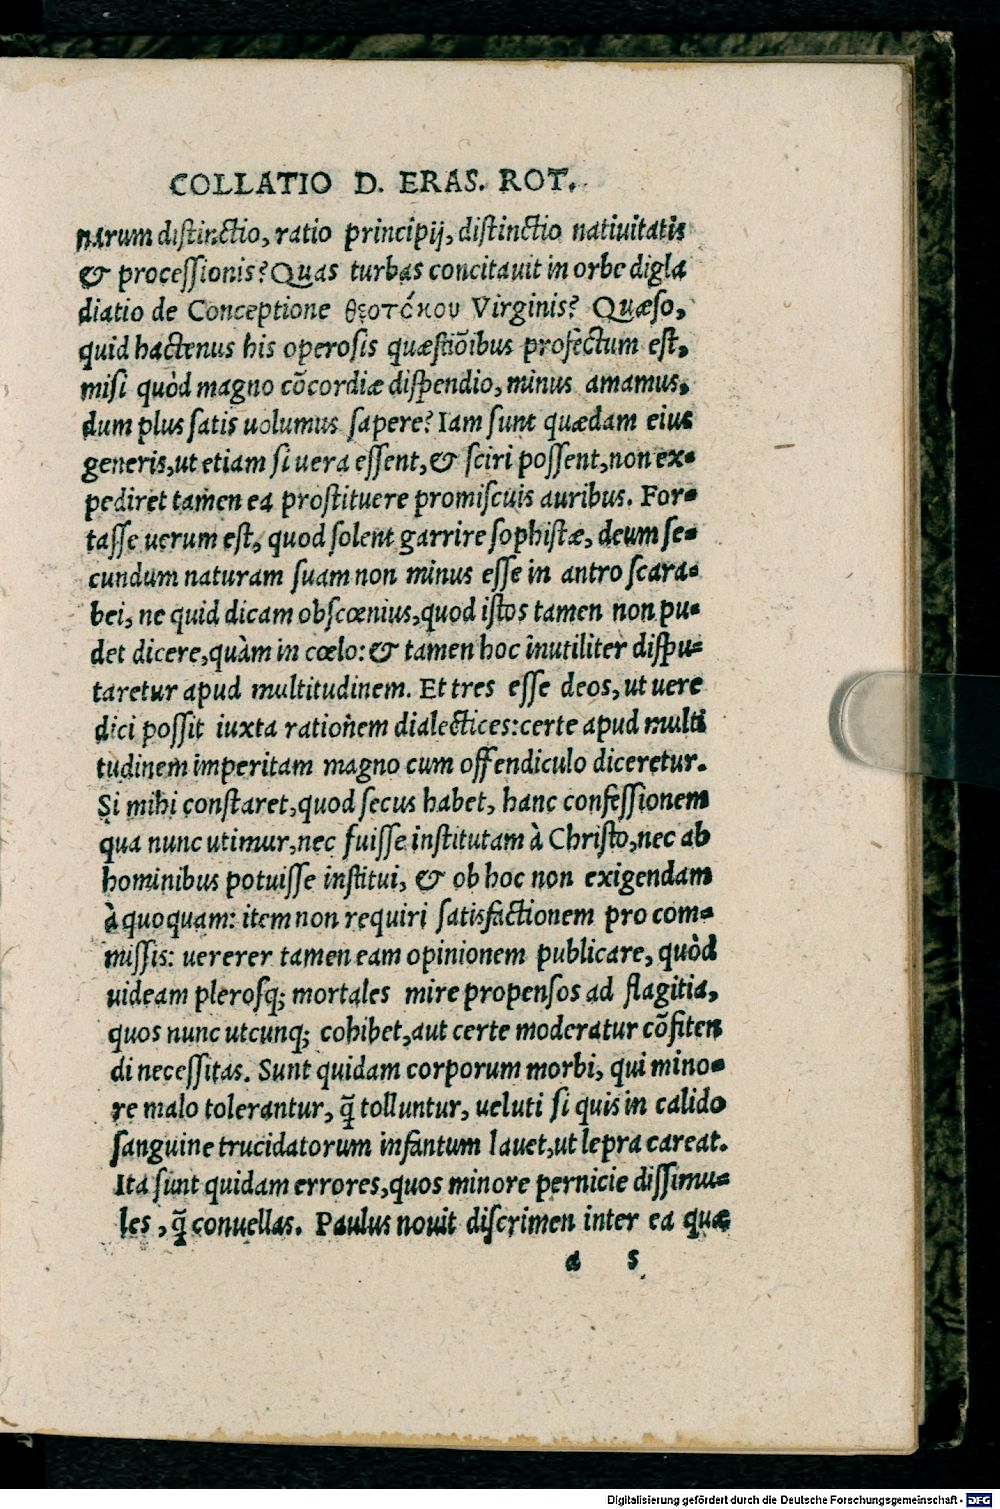 COLLATIO D. ERAS. ROT.
narum distinctio, ratio principij, distinctio natiuitatis
& processionis? Quas turbas concitauit in orbe digla
diatio de Conceptione θεοτόκου Virginis? Quæso,
quid hactenus his operosis quæstiõibus profectum est,
misi quòd magno cõcordiæ dispendio, minus amamus,
dum plus satis uolumus sapere? Iam sunt quædam eius
generis, ut etiam si uera essent, & sciri possent, non ex-
pediret tamen ea prostituere promiscuis auribus. For-
tasse uerum est, quod solent garrire sophistæ, deum se-
cundum naturam suam non minus esse in antro scara-
bei, ne quid dicam obscœnius, quod istos tamen non pu-
det dicere, quàm in cœlo: & tamen hoc inutiliter dispu-
taretur apud multitudinem. Et tres esse deos, ut uere
dici possit iuxta rationem dialectices: certe apud multi
tudinem imperitam magno cum offendiculo diceretur.
Si mihi constaret, quod secus habet, hanc confessionem
qua nunc utimur, nec fuisse institutam à Christo, nec ab
hominibus potuisse institui, & ob hoc non exigendam
à quoquam: item non requiri satisfactionem pro com-
missis: uererer tamen eam opinionem publicare, quòd
uideam plerosq; mortales mire propensos ad flagitia,
quos nunc utcunq; cohibet, aut certe moderatur cõfiten
di necessitas. Sunt quidam corporum morbi, qui mino-
re malo tolerantur, q̃ tolluntur, ueluti si quis in calido
sanguine trucidatorum infantum lauet, ut lepra careat.
Ita sunt quidam errores, quos minore pernicie dissimu-
les, q̃ conuellas. Paulus nouit discrimen inter ea quæ
a 5
Digitalisierung gefördert durch die Deutsche Forschungsgemeinschaft - DFG